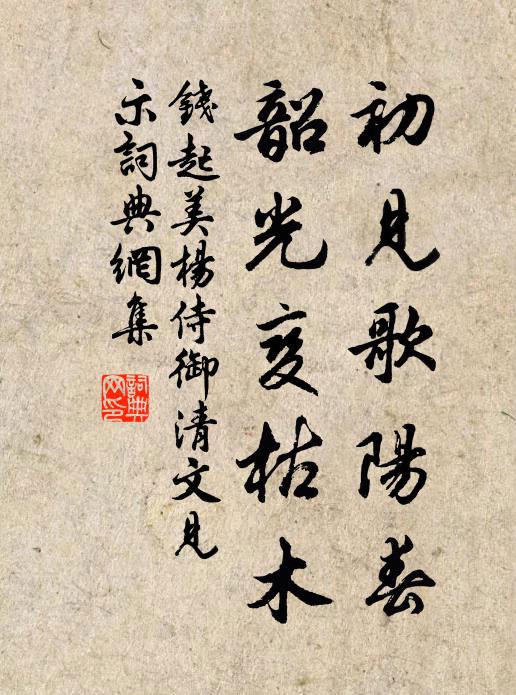 初見歌陽春
韶光变枯木
錢起美楊侍御清文見
示詞典網集
詞典
网印